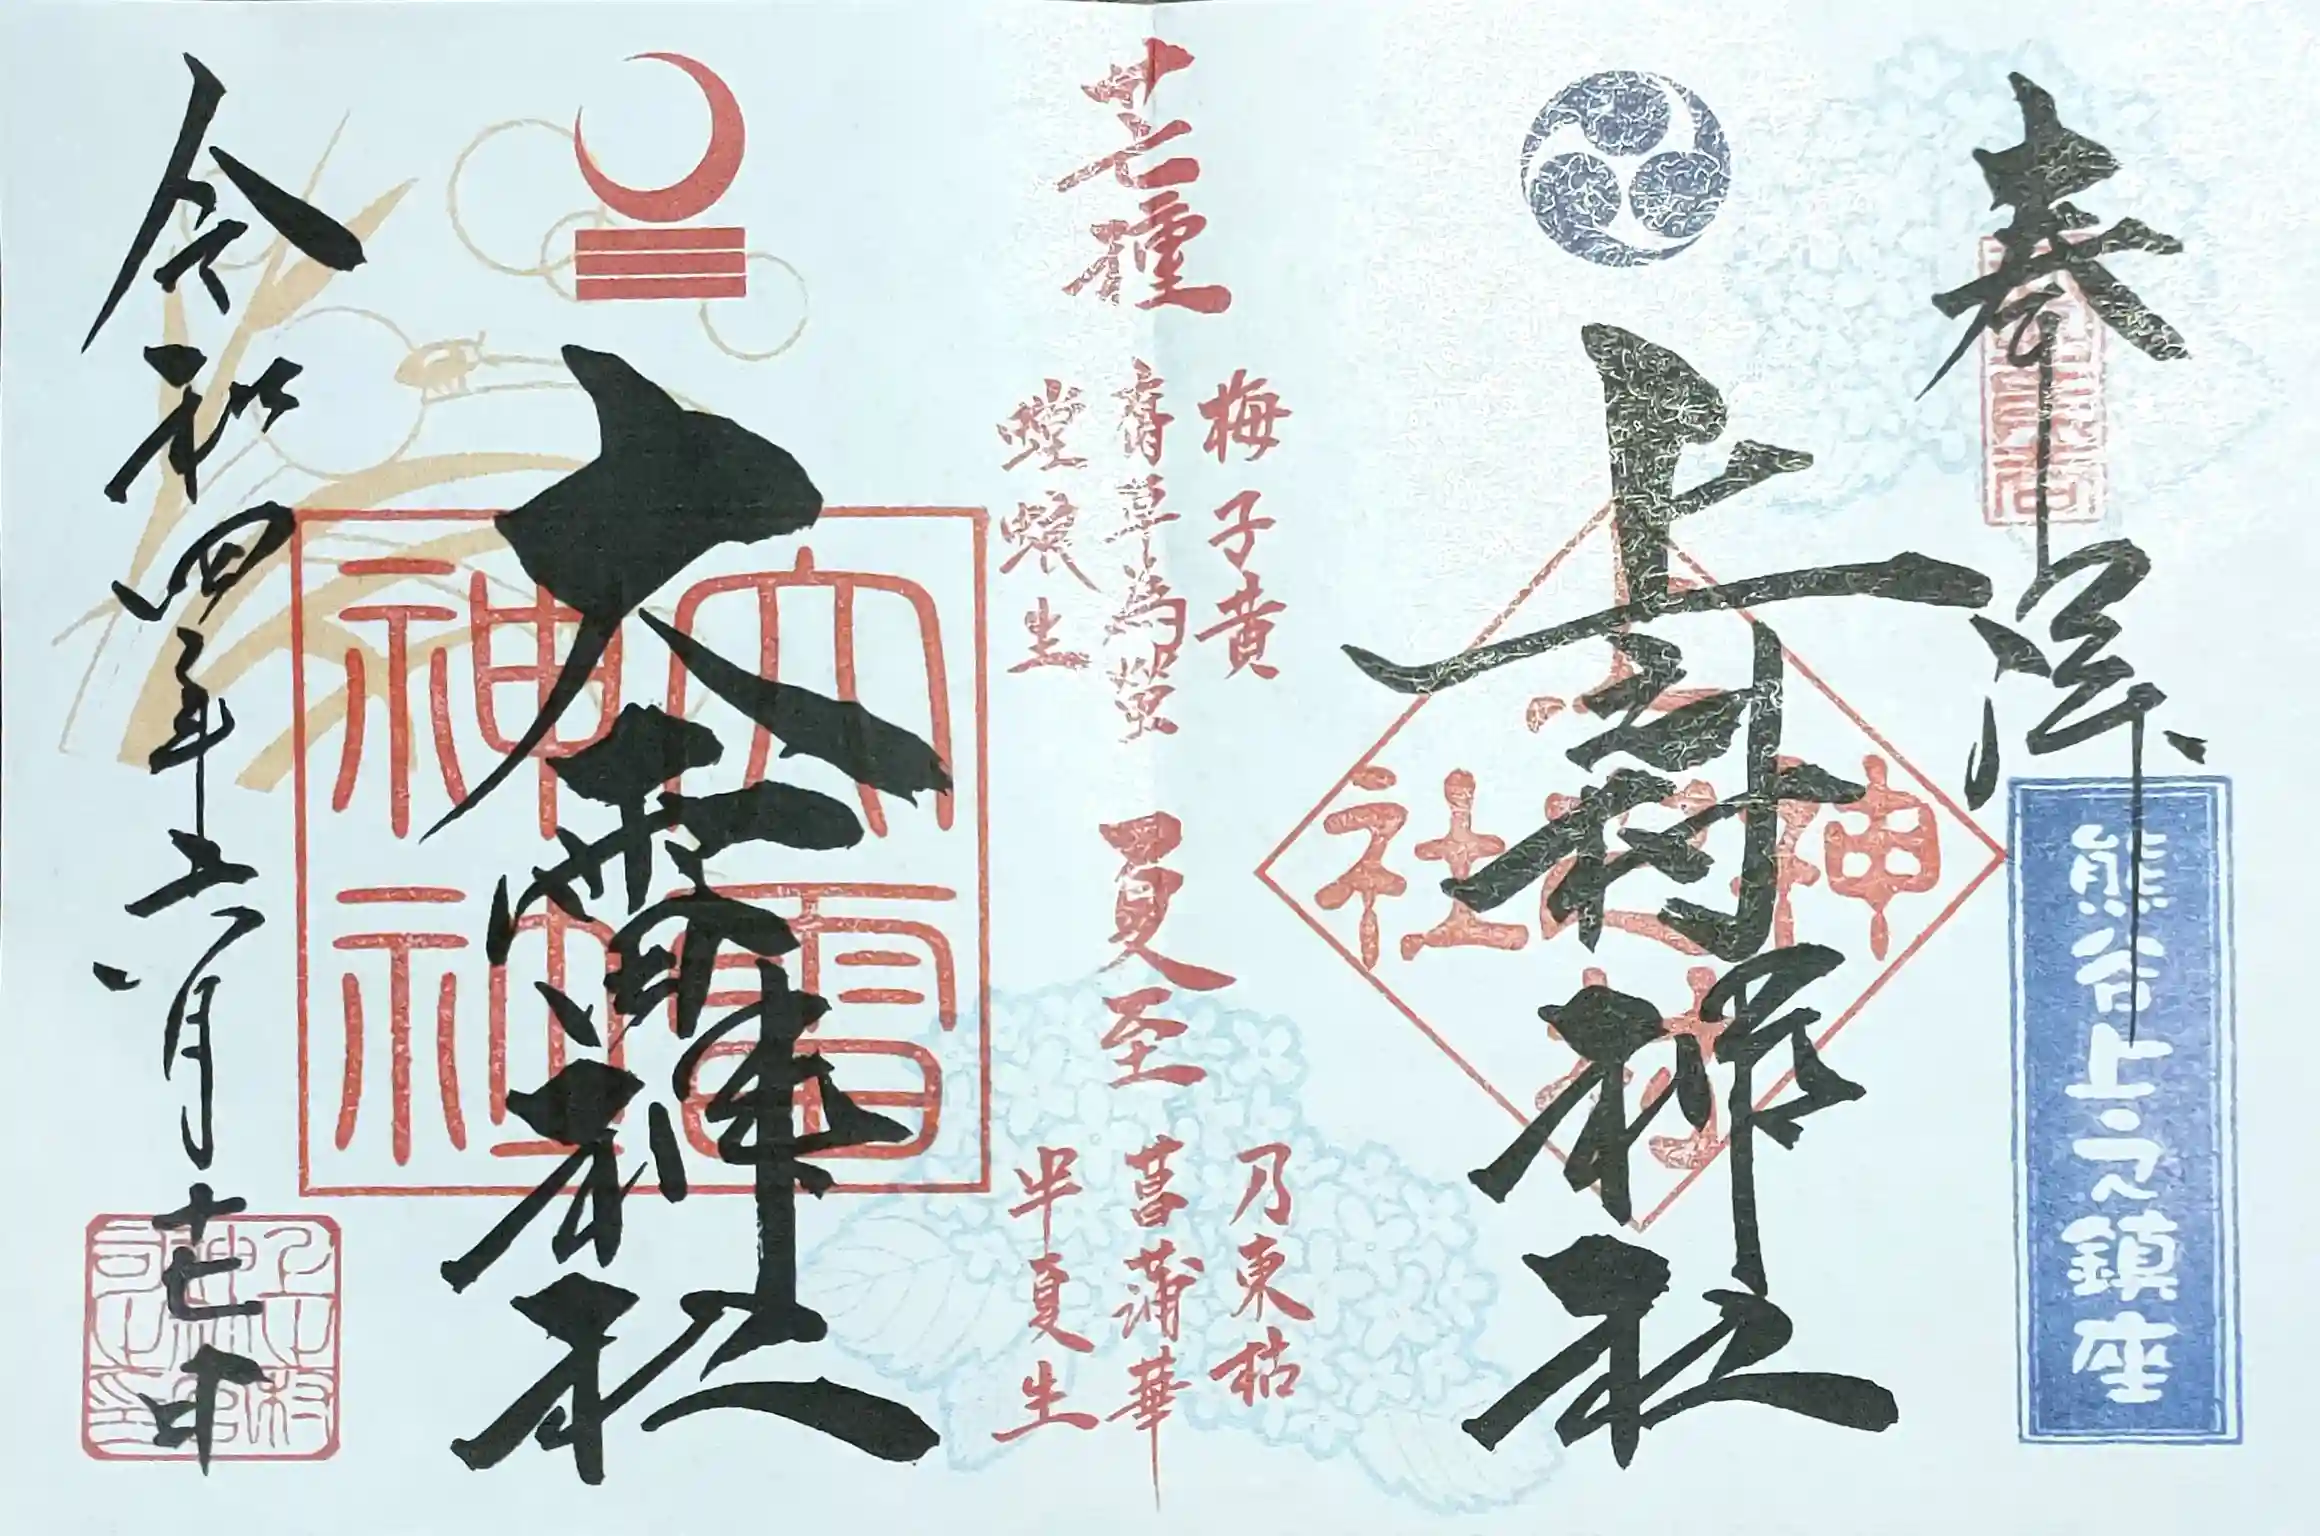 奉拝
熊谷上之鎮座
上之村神社
上之村神社
芒種
梅子黄
腐草為螢
螳螂生
夏至
乃東枯
菖蒲華
半夏生
大雷神社
大雷神社
令和四年六月十七日
上之村神社宮司之印